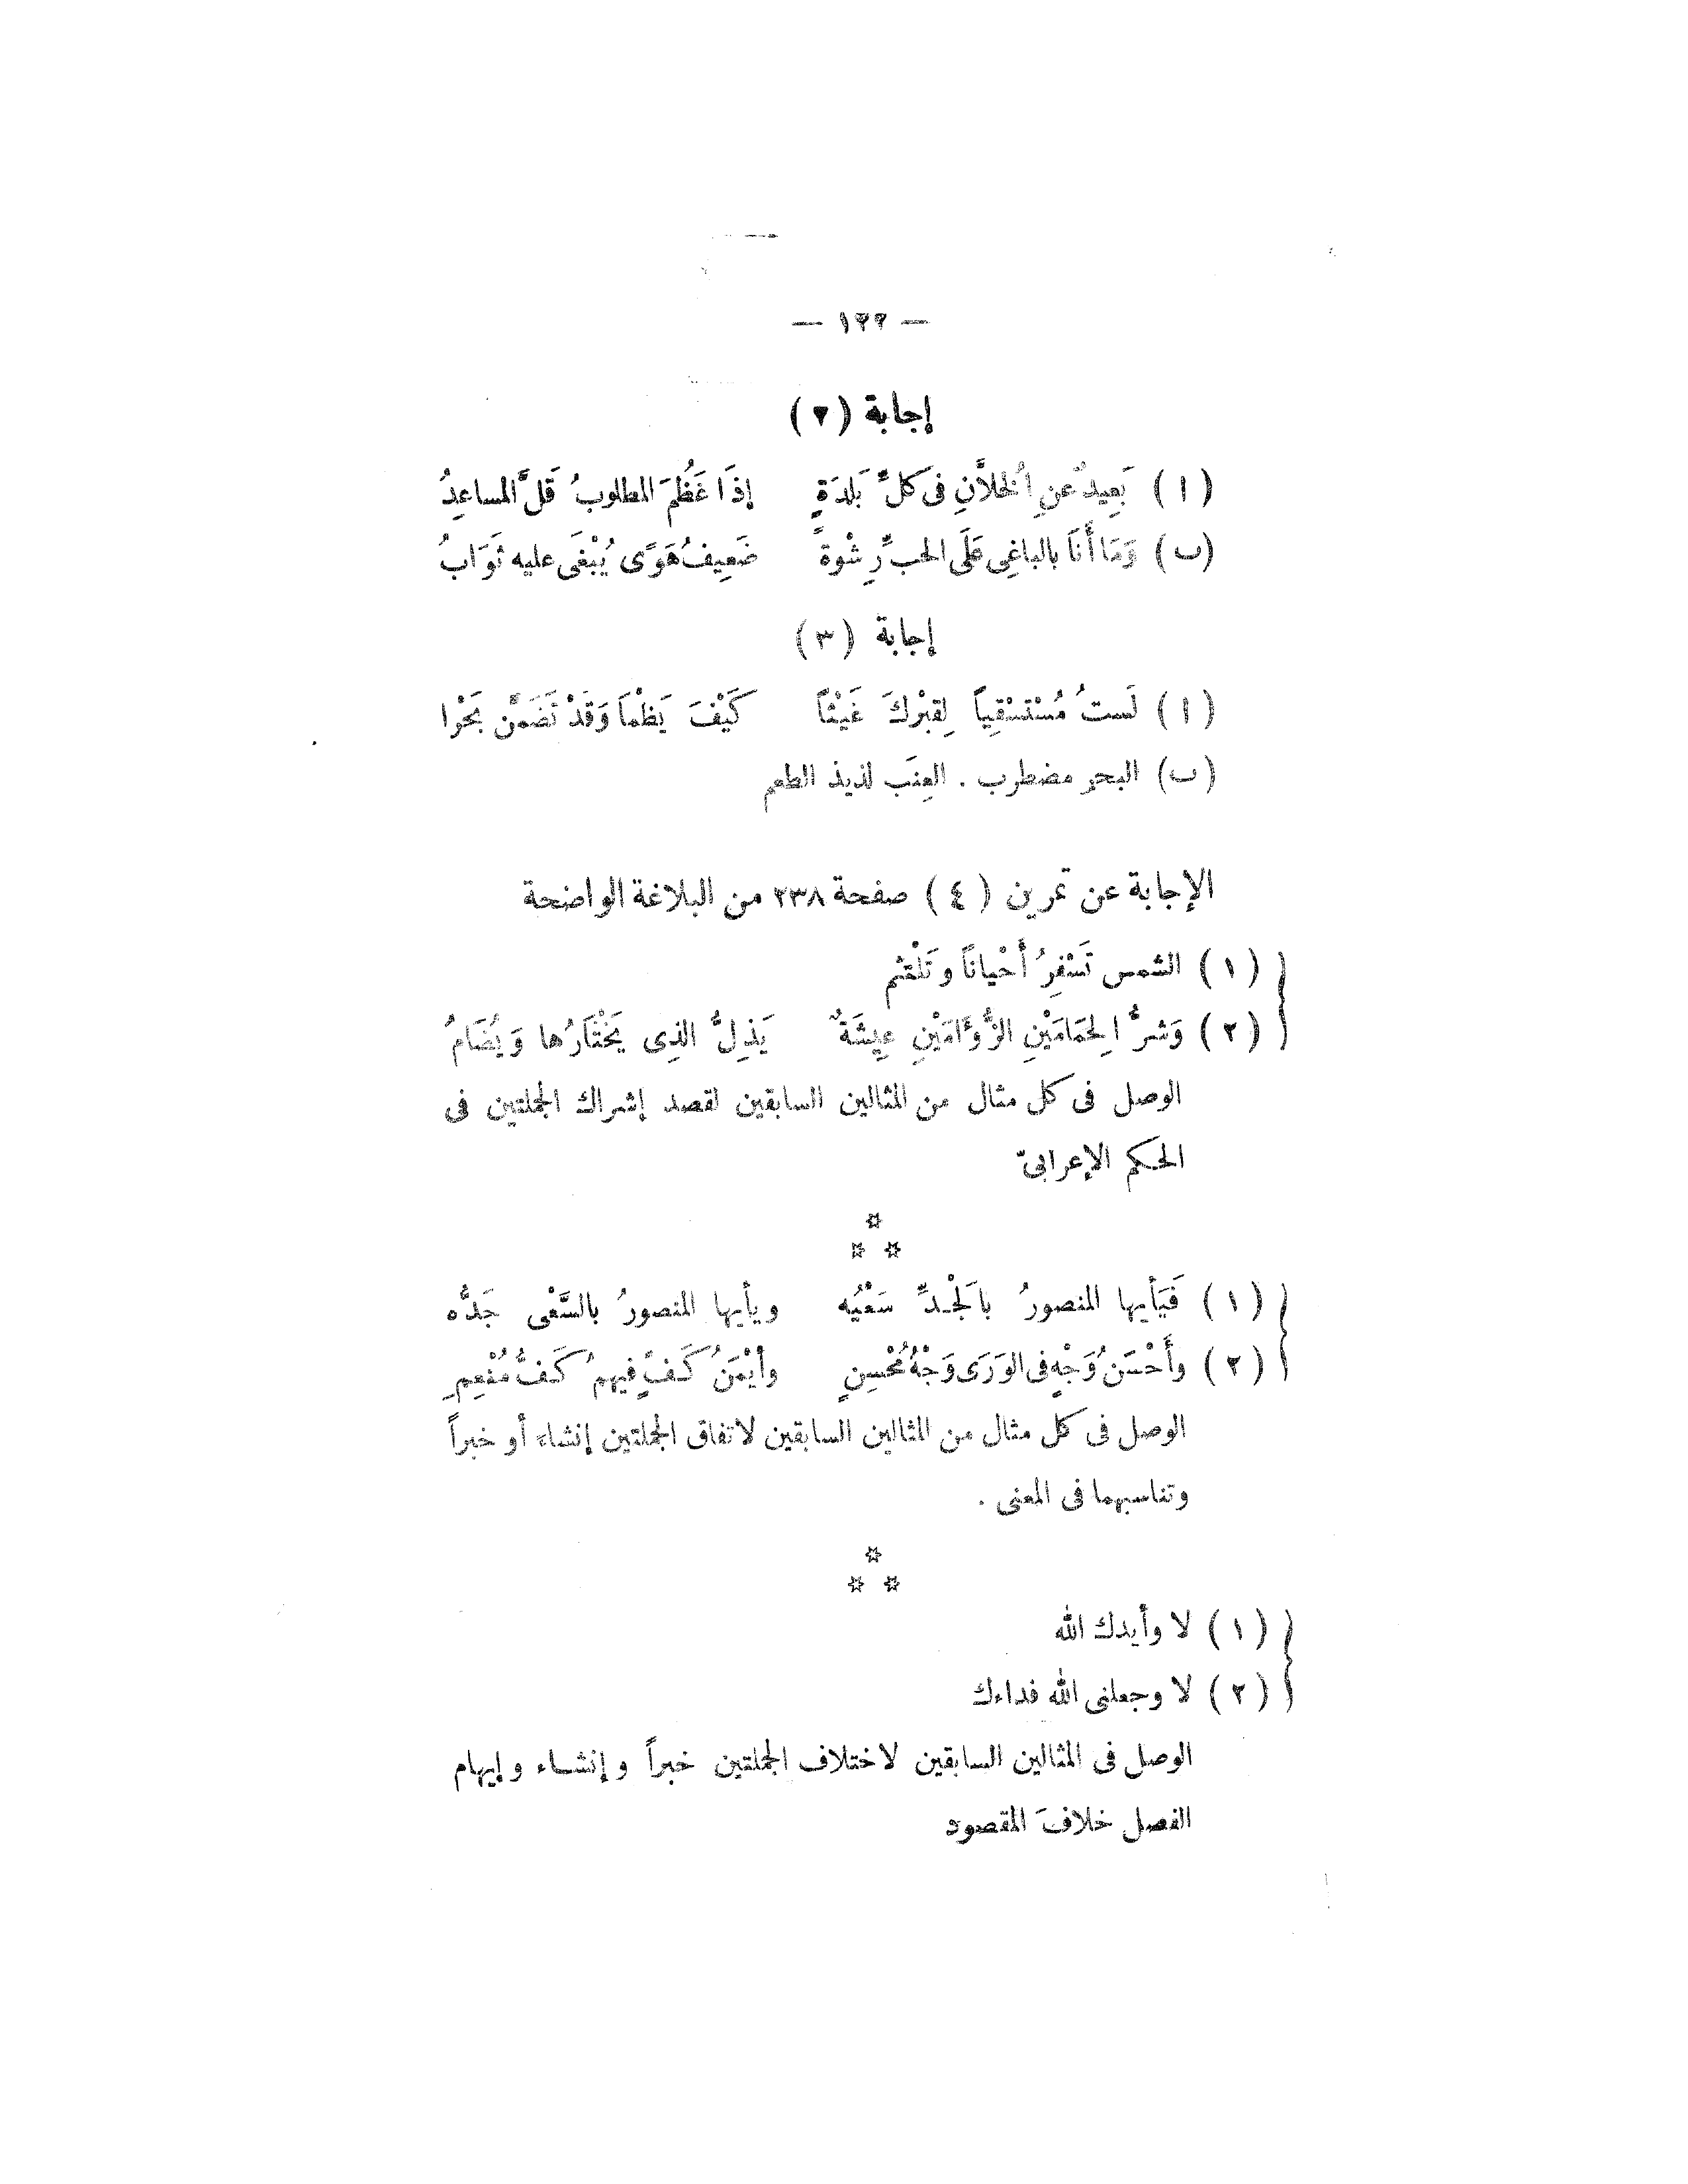 — ١٢٢ —
إجابة (٢)
(ا) بَعِيدٌ عَنِ اُلْخلاَّنِ فى كلِّ بَلدَةٍ إذَا عَظُمَ المطلوبُ قَلَّ المساعِدُ
(ب) وَمَا أَنَا بالباغِى عَلَى الحبِّ رِشْوةً ضَعِيفُ هَوًى يُبْغَى عليه ثَوَابُ
إجابة (٣)
(ا) لَستُ مُسْتسْقِياً لِقبْرِكَ غَيْثاً كَيْفَ يَظْمَا وَقَدْ تَضَمَّنَ بَحْرا
(ب) البحر مضطرب . العِنَب لذيذ الطعم
الإجابة عن تمرين (٤) صفحة ٢٣٨ من البلاغة الواضحة
(١) الشمس تَسْفِرُ أَحْياناً وتَلْتَثم
(٢) وَشرُّ الِحمَامَيْنِ الزُّؤَامَيْنِ عِيشَةٌ يَذِلُّ الذِى يَخْتَارُها وَيُضَامُ
الوصل فى كل مثال من المثالين السابقين لقصد إشراك الجملتين فى
الحكم الإعرابىّ
(١) فَيَأيها المنصورُ باَلْجدِّ سَعْيُه ويأيها المنصورُ بالسَّعْى جَدُّه
(٢) وأَحْسَنُ وَجْهٍ فى الوَرَى وَجْهُ مُحْسِنٍ وأيْمَنُ كَفٍّ فيهمُ كَفُّ مُنْعِمِ
الوصل فى كل مثال من المثالين السابقين لاتفاق الجملتين إنشاء أو خبراً
وتناسبهما فى المعنى .
(١) لا وأيدك الله
(٢) لا وجعلنى الله فداءك
الوصل فى المثالين السابقين لاختلاف الجملتين خبراً وإنشاء وإيهام
الفصل خلافَ المقصود